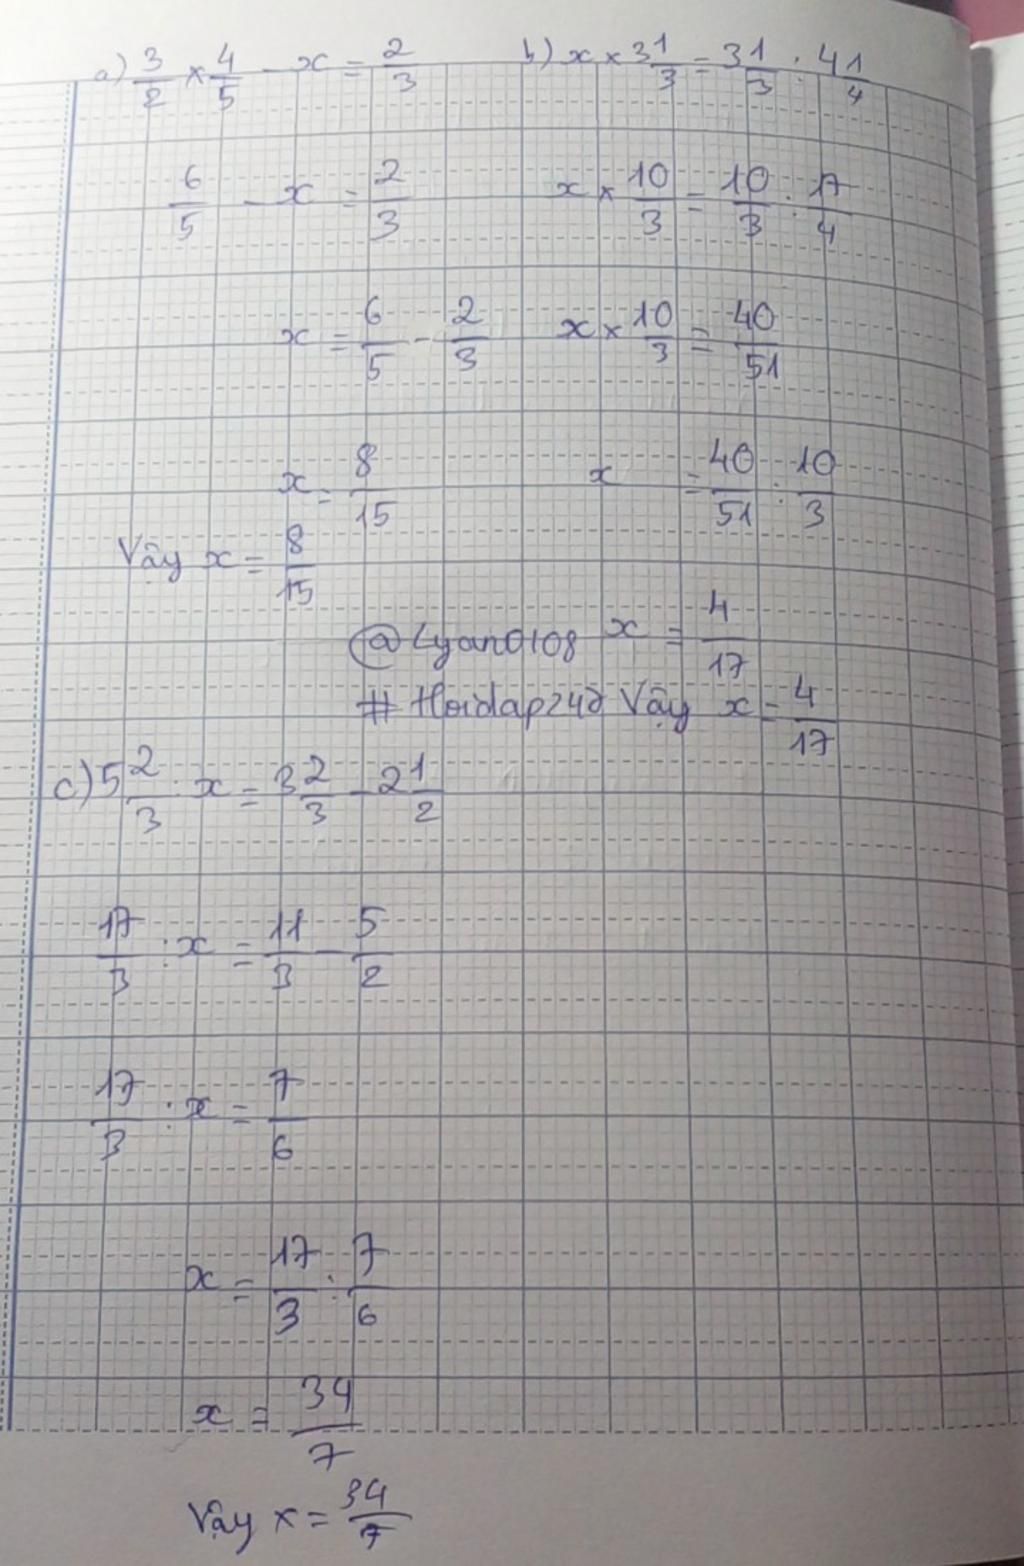 a) 3/2 × 4/5 - x = 2/3
6/5 - x = 2/3
x = 6/5 - 2/3
x = 8/15
Vậy x = 8/15
b) x × 3 1/3 = 3 1/3 : 4 1/4
x × 10/3 = 10/3 : 17/4
x × 10/3 = 40/51
x = 40/51 : 10/3
x = 4/17
Vậy x = 4/17
@Lyan0108
#Hoidap247
c) 5 2/3 : x = 3 2/3 - 2 1/2
17/3 : x = 11/3 - 5/2
17/3 : x = 7/6
x = 17/3 : 7/6
x = 34/7
Vậy x = 34/7